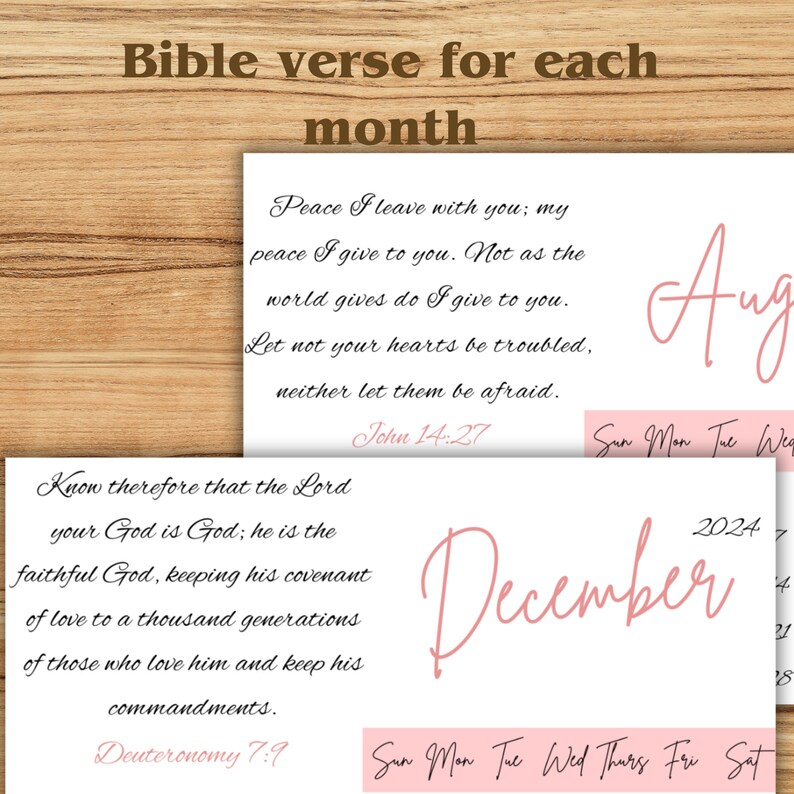 Bible verse for each
month
Peace I leave with you; my
peace I give to you. Not as the
world gives do I give to you.
Let not your hearts be troubled,
neither let them be afraid.
John 14:27
Aug
Sun Mon Tue Wed
Know therefore that the Lord
your God is God; he is the
faithful God, keeping his covenant
of love to a thousand generations
of those who love him and keep his
commandments.
Deuteronomy 7:9
2024
December
Sun Mon Tue Wed Thurs Fri Sat
7
14
21
28